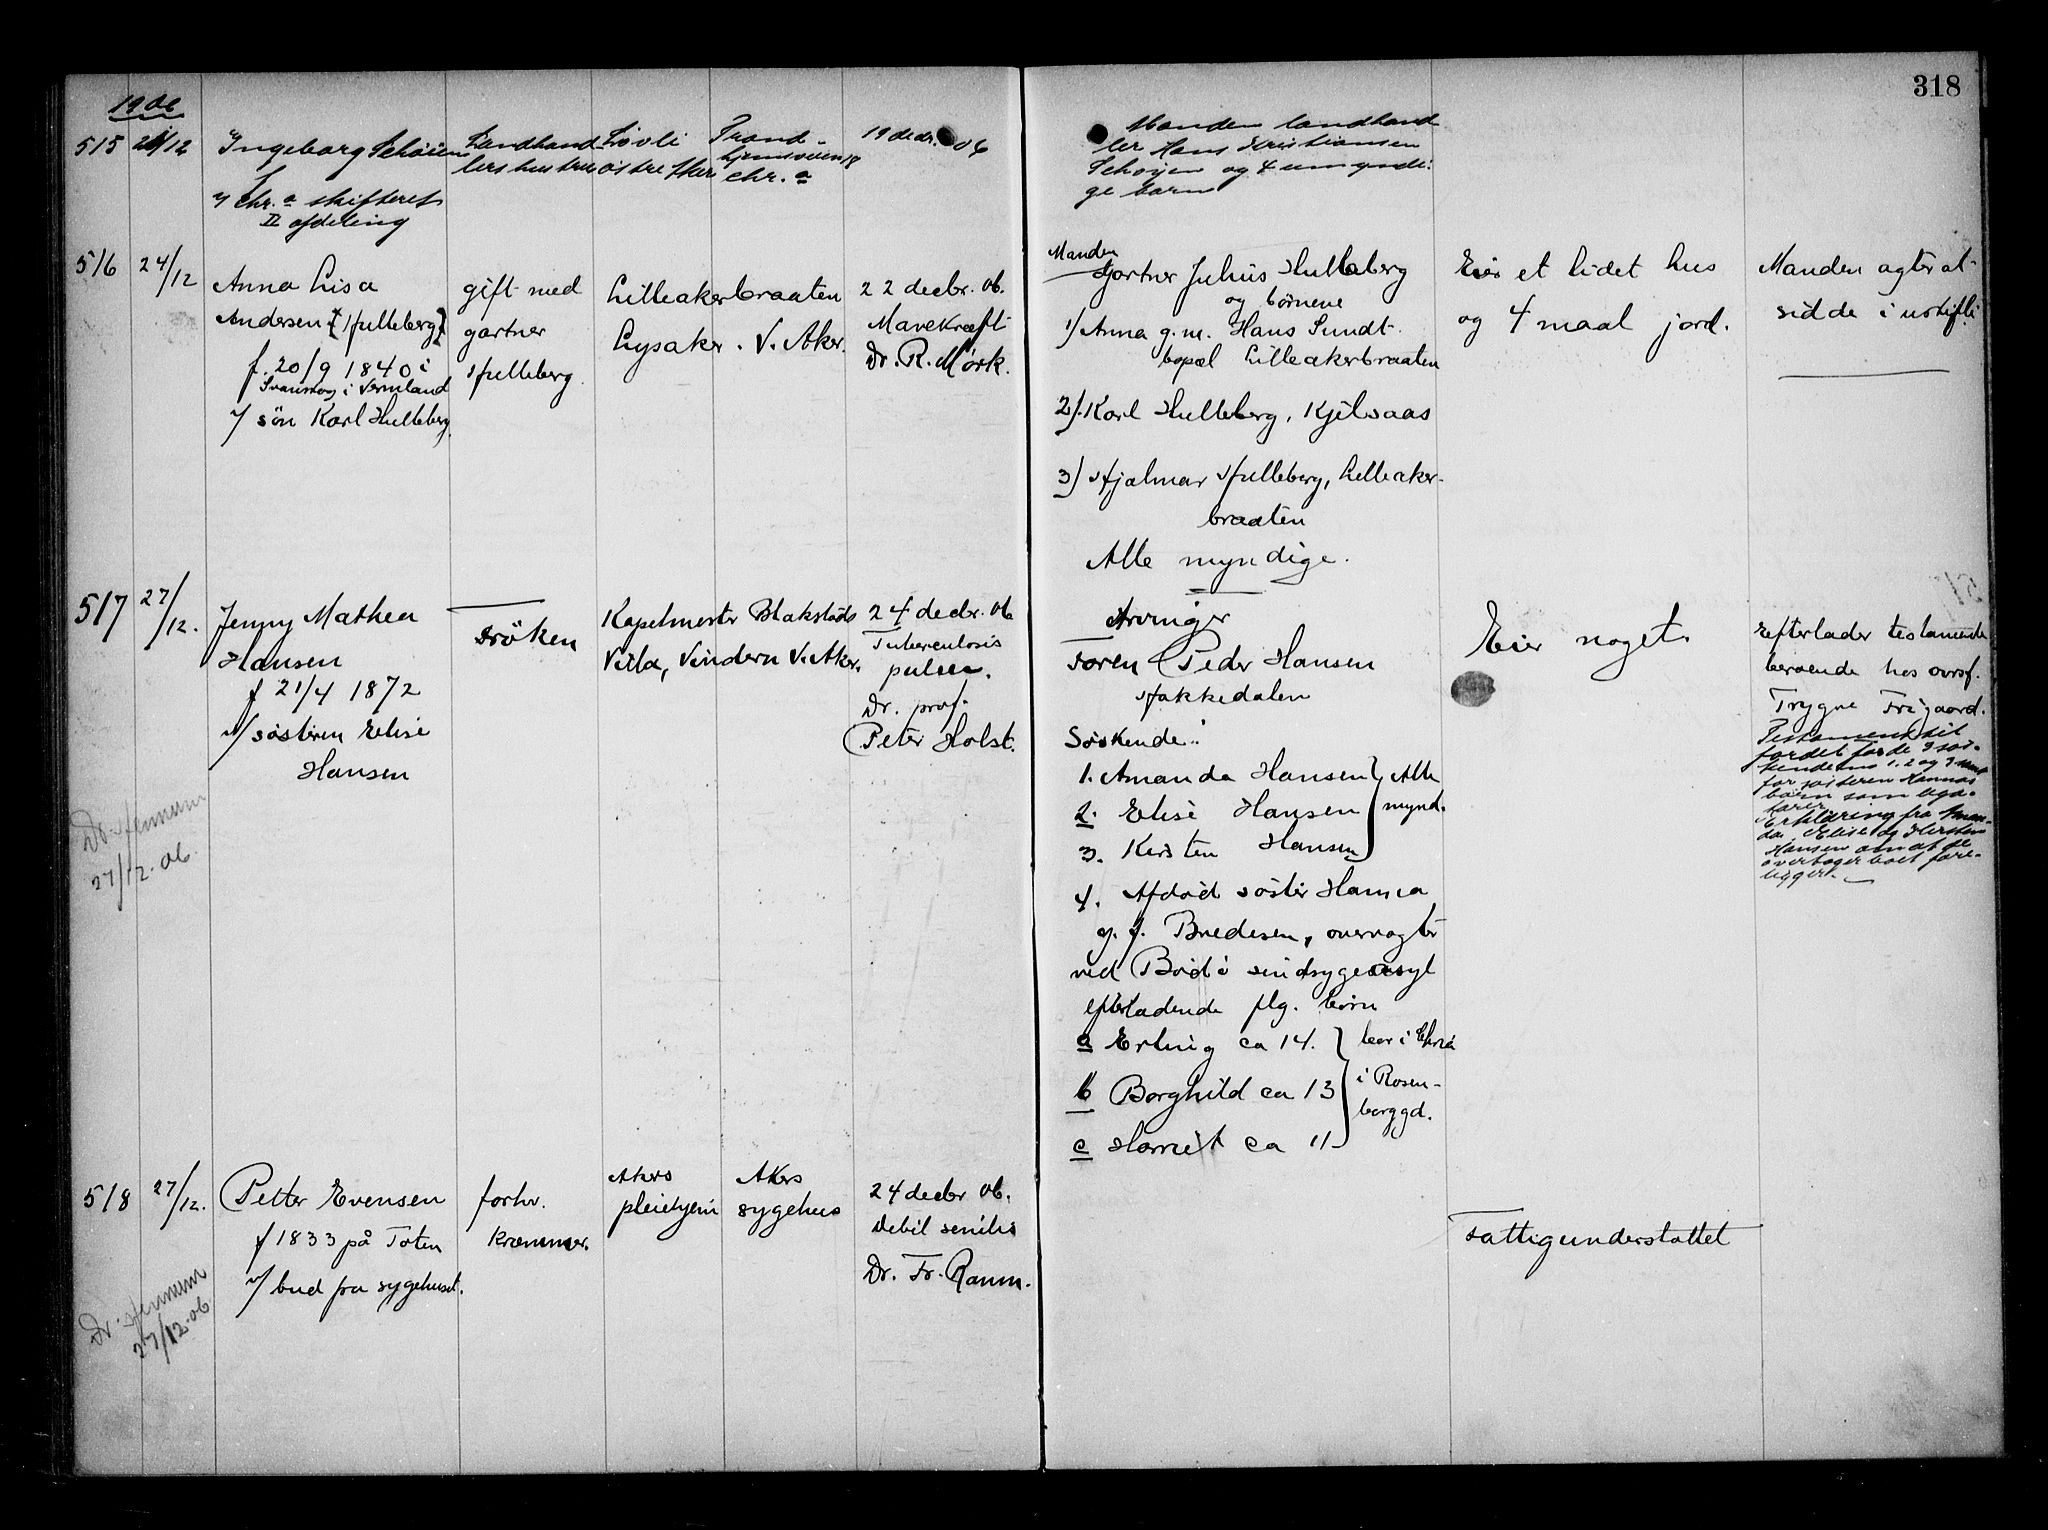 318
1906
515
21/12
Ingeborg Schöien
v/ Chr.a skifteret
II afdeling
Landhand
lers hustru
Lövli
östre Aker
Trond-
hjemsveien 18
Chr.a
19 decbr. 06
Manden landhand
ler Hans Kristiansen
Schöyen og 4 umyndi-
ge barn
516
24/12
Anna Lisa
Andersen (Hulleberg)
f. 20/9 1840 i
i Vermland
v/ sön Karl Hulleberg.
gift med
gartner
Hulleberg.
Lilleakerbraaten
Lysaker. V. Aker.
22 decbr. 06.
Mavekræft
Dr. R. Mörk.
Manden
Gartner Julius Hulleberg
og börnene
1) Anna g. m. Hans Sundt
bopæl Lilleakerbraaten
2). Karl Hulleberg, Kjelsaas
3) Hjalmar Hulleberg, Lilleaker-
braaten
Alle myndige.
Eier et lidet hus
og 4 maal jord.
Manden agter at
sidde i uskifte
517
27/12.
Jenny Mathea
Hansen
f 21/4 1872
v/ søsteren Elise
Hansen
Dr. Hennum
27/12. 06.
Fröken
Kapelmester Blakstads
Villa, Vindern V. Aker.
24 decbr. 06
Tuberculosis
pulm.
Dr. prof.
Peter Holst.
Arvinger
Faren Peder Hansen
Hakkedalen
Söskende:
1. Amanda Hansen
2. Elise Hansen
3. Kirsten Hansen
Alle
mynd.
4. Afdöd söster Hanna
g. f. Bredesen, overvogter
ved Bodö sindsygeasyl
efterladende flg. börn
a Erling ca 14.
b Borghild ca 13
c Harriet ca 11
bor i Chria
i Rosen-
borggd.
Eier noget.
Efterlader testamente
beroende hos ovrsf.
Trygve Frigaard.
Testament til
fordel for de 3 søs-
kendene 1. 2 og 3 samt
for søsteren Hannas
barn som lega-
tarer
Erklæring fra Aman-
da, Elise og Kirsten
Hansen om at de
overtager boet fore-
ligger.
518
27/12.
Petter Evensen
f 1833 på Toten
v/ bud fra sygehuset.
Dr. Hennum
27/12. 06
forhv.
Kræmmer.
Akers
pleiehjem
Akers
sygehus
24 decbr 06.
Debil senilis
Dr. Fr. Ramm.
Fattigunderstøttet